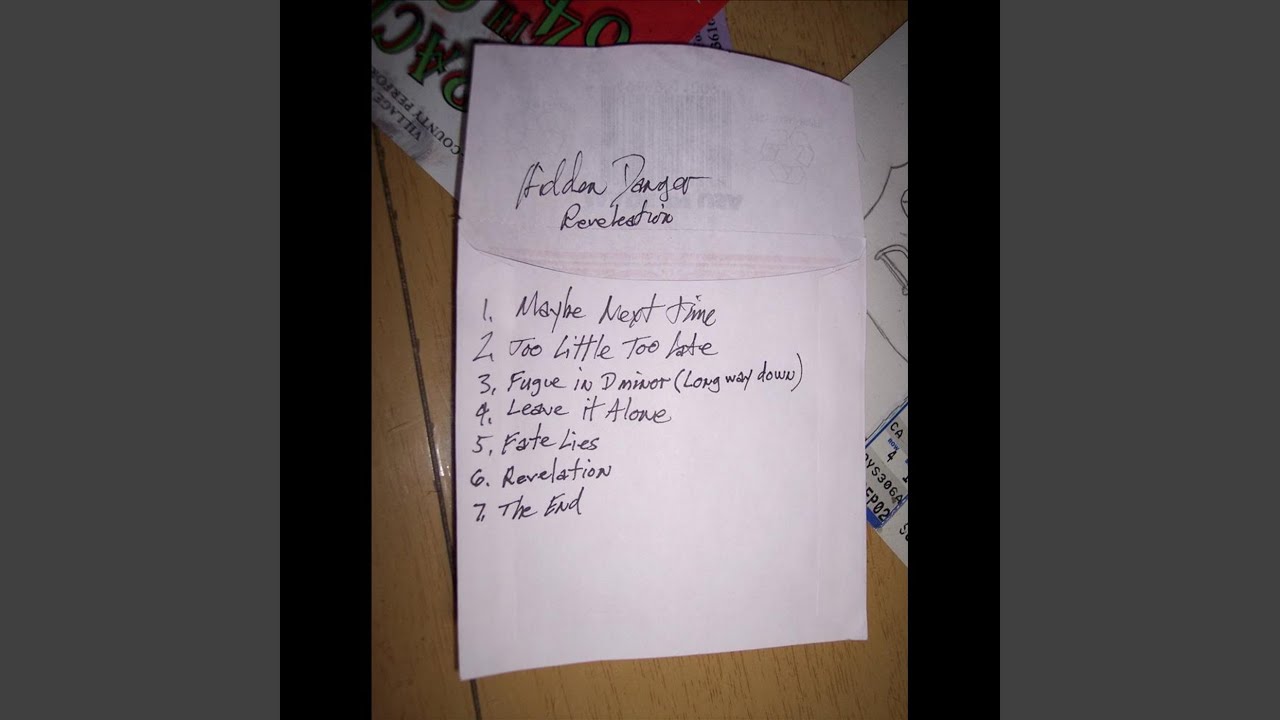 VILLAGE
COUNTY PERFOR
Hidden Danger
Revelation
1. Maybe Next time
2. Too Little Too Late
3. Fugue in D minor (Long way down)
4. Leave it Alone
5. Fate Lies
6. Revelation
7. The End
CA
4
YS306A
EP02